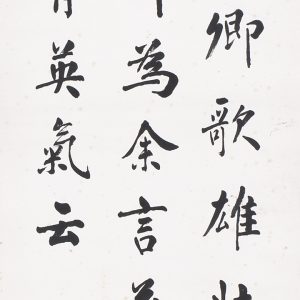 卿歌雄壯
為余言
英氣云